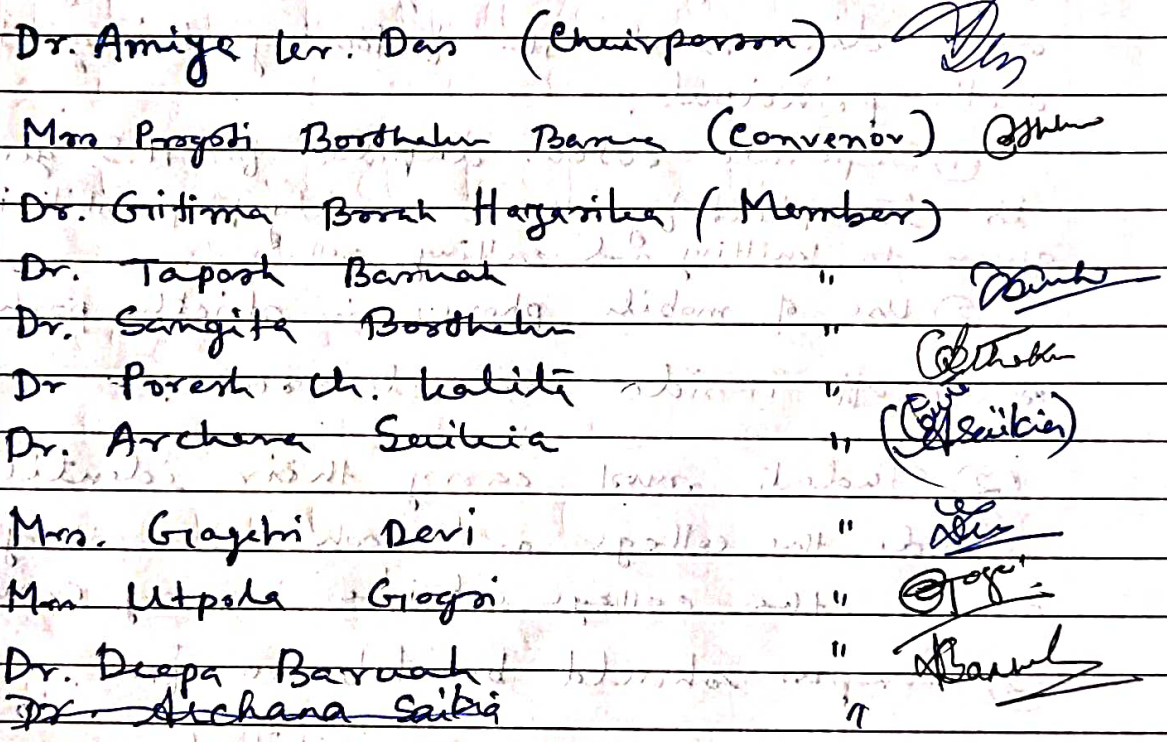 Dr. Amiya kr. Das (Chairperson)
Mrs Progoti Borthakur Barua (Convenor)
Dr. Gitima Borah Hazarika (Member)
Dr. Taposh Baruah "
Dr. Sangita Borthakur "
Dr Poresh ch. Kalita "
Dr. Archana Saikia " (Saikia)
Mrs. Gayetri Devi "
Mrs Utpola Gogoi " Gogoi
Dr. Deepa Baruah " Baruah
Dr. Archana Saikia "